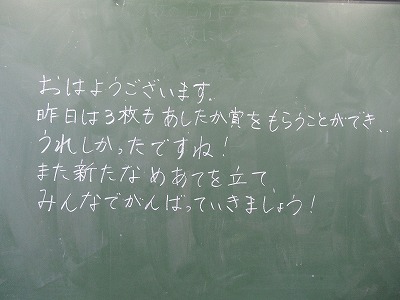 おはようございます。
昨日は3枚もあしたか賞をもらうことができ、
うれしかったですね!
また新たなめあてを立て、
みんなでがんばっていきましょう!